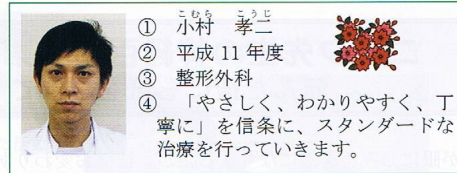 こむら こうじ
① 小村 孝二
② 平成 11 年度
③ 整形外科
④ 「やさしく、わかりやすく、丁
寧に」を信条に、スタンダードな
治療を行っていきます。